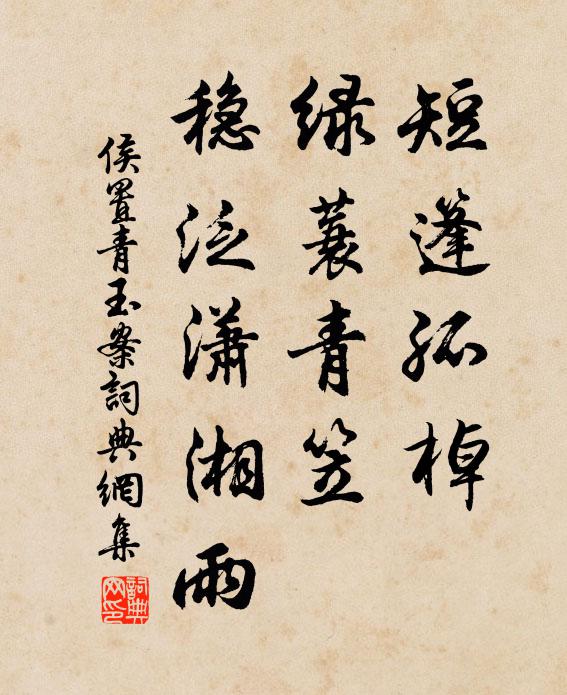 短篷孤棹
绿蓑青笠
稳泛潇湘雨
侯置青玉案詞典網集
詞典网印